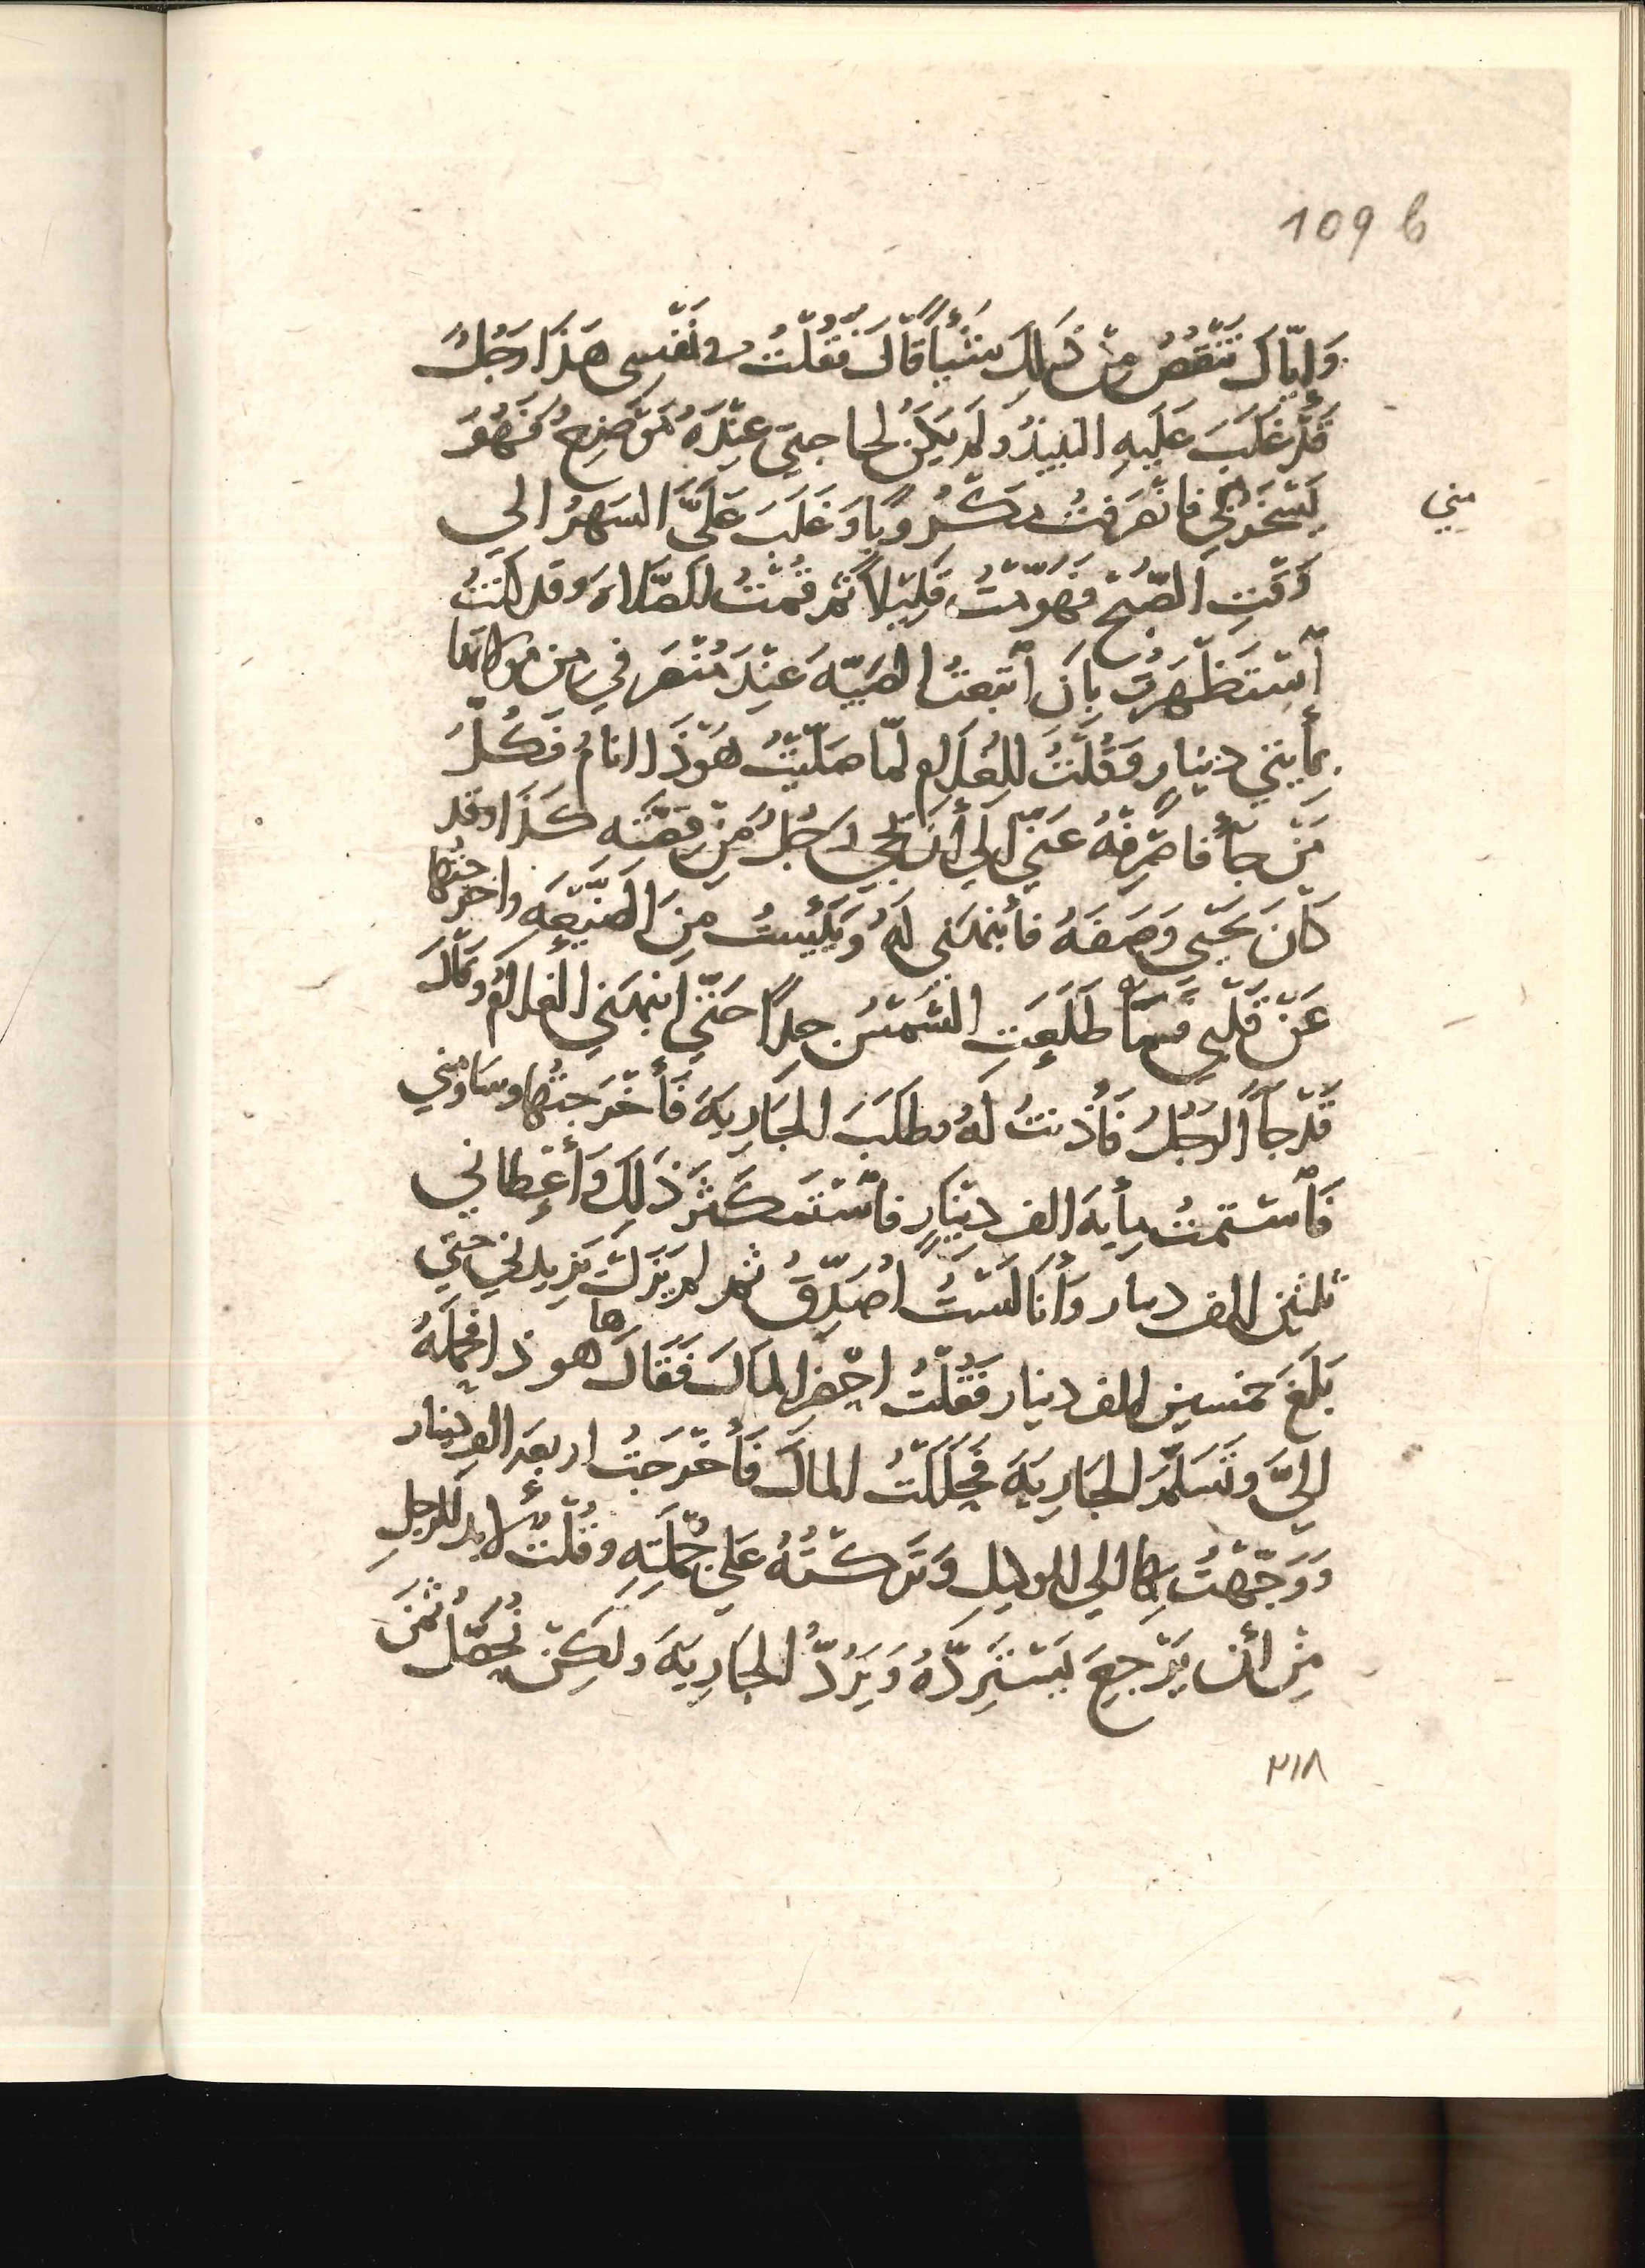 109 b
وَإِيّاكَ تَنْقُصُ مِنْ ذَلِكَ شَيْأً قَالَ فَقُلْتُ في نَفْسِي هَذَا رَجُلٌ
قَدْ غَلَبَ عَلَيهِ النبيذُ وَلَم يَكن لحاجتي عِنْدَهُ مَوْضِعٌ فَهُوَ
يَسْخَرُ بي فانْصَرفْتُ مَكْرُوبًا وَغَلَبَ عَلَيَّ السَهَرُ الي
مِنِي
وَقْتِ الصُّبْحِ فَهَوَّمْتُ قَلِيْلاً ثم قُمْتُ للصَّلاة وقد كنتُ
اسْتَظْهَرتُ بِاَن ابْتَعتُ الصَبِيّةَ عِنْدَ مُنْصَرَفي من مولاتها
بمأيتي دينارٍ وَقُلتُ للغُلامِ لمّا صَلّيْتُ هَوْذَا انامُ فَكُلُّ
مَنْ جآءَ فاصْرِفْهُ عَنِّي الي أَن يَجي رَجُلٌ مِنْ قِصَّتِه كَذَا وقد
كَانَ يَحْيَى وَصَفَهُ فأنْبِهني لَهُ وَيَئِستُ مِنَ الصَنِيْعَةِ واخرجتُها
عَنْ قَلْبِي فَمَا طَلَعَتِ الشَمْسُ جِدًا حَتّي انبهَني الغلامُ وَقَالَ
قَدْ جآءَ الرَجُلُ فَأَذِنتُ لَهُ وطلَبَ الجَارِيةَ فَأَخْرَجتُها وسَاوَمَني
فَأسْتَمتُ مِأيةَ الف دِيْنَارٍ فاسْتَكثَرَ ذَلِكَ وَأَعْطاني
ثلثين الف دينار وَأَنَا لَسْتُ اُصَدِّقُ ثم لم يَزَلْ يَزِيدُني حتي
بَلَغَ خمسين الف دينار فَقُلْتُ احْضِر المَالَ فَقَالَ ها هو ذا فحَملَهُ
اليَّ وتَسَلَّمَ الجَارِيَةَ فَحَلَلْتُ المالَ فَأَخْرَجتُ اربعَةَ الف دينار
وَوَجَّهْتُ بِها الي الوكيلِ وَتَرَكْتُهُ عَلي جُمْلَتِهِ وقُلْتُ لا بُدّ للرجلِ
مِنْ أن يَرْجِعَ يَسْتَرِدُّهُ وَيَرُدُّ الجَارِيَةَ ولكِنْ نُحَصِّلُ ثَمَنَ
٢١٨